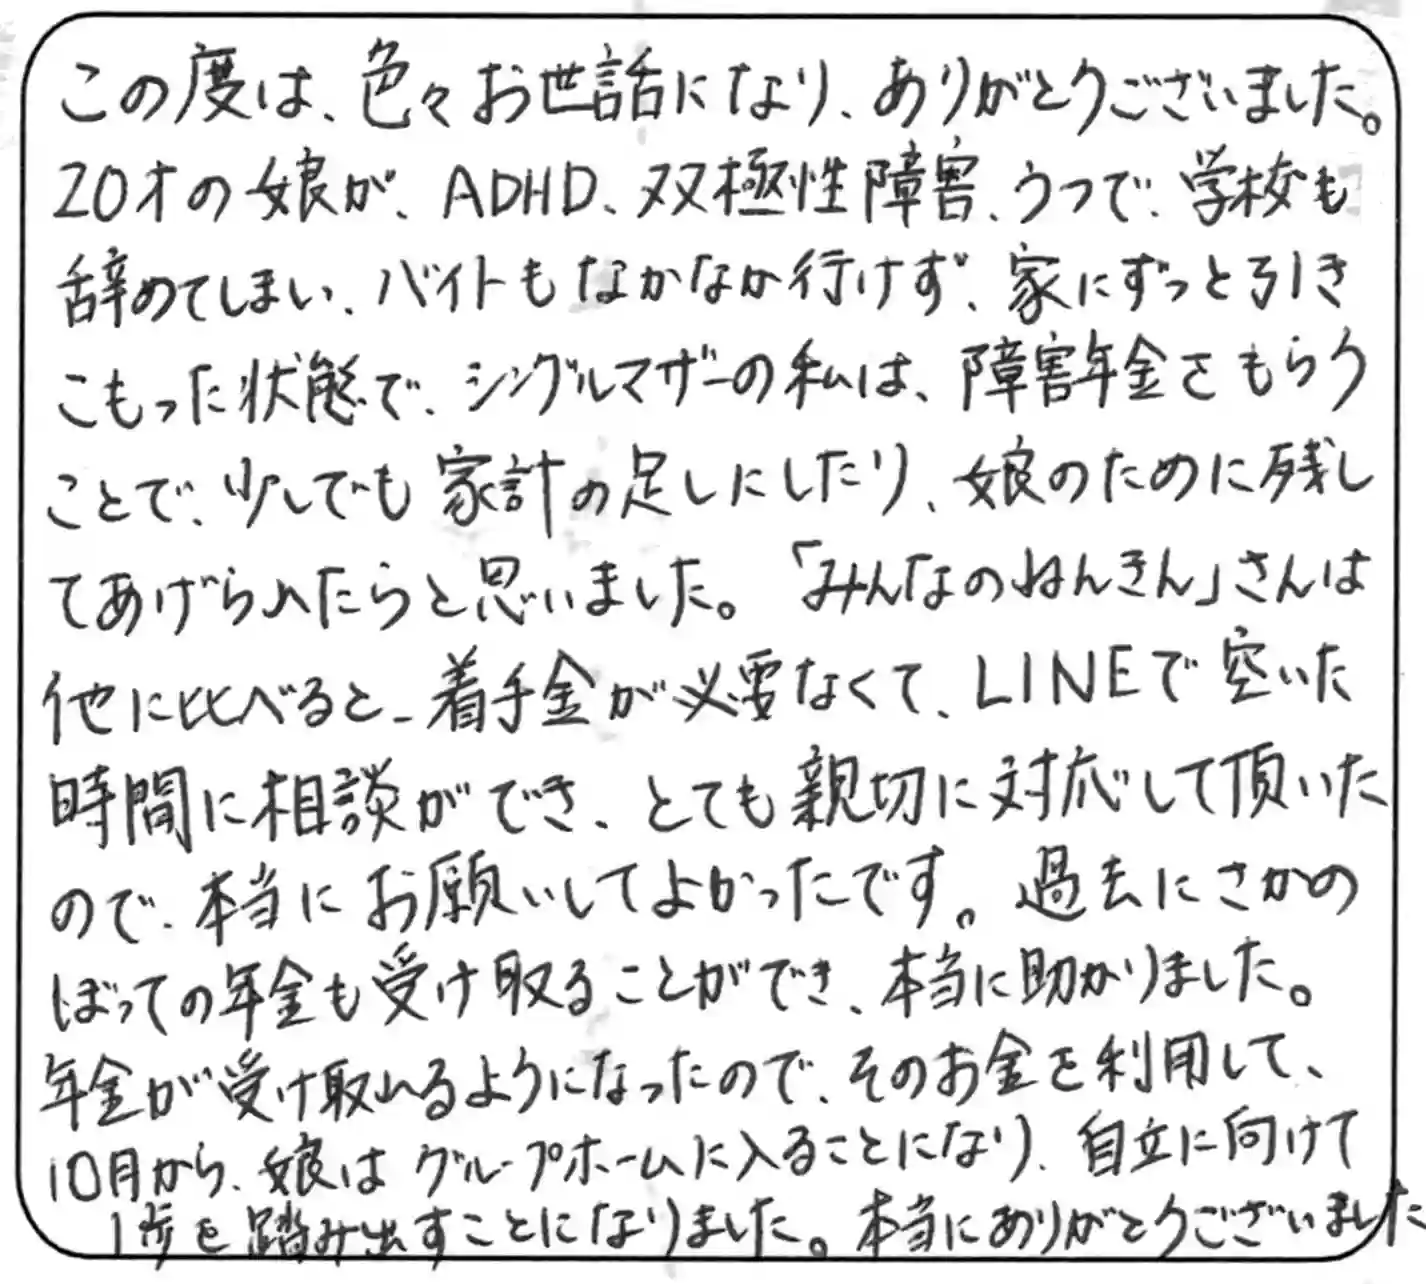 この度は、色々お世話になり、ありがとうございました。
20才の娘が、ADHD、双極性障害、うつで、学校も
辞めてしまい、バイトもなかなか行けず、家にずっと引き
こもった状態で、シングルマザーの私は、障害年金をもらう
ことで、少しでも家計の足しにしたり、娘のために残し
てあげられたらと思いました。「みんなのねんきん」さんは
他に比べると、着手金が必要なくて、LINEで空いた
時間に相談ができ、とても親切に対応して頂いた
ので、本当にお願いしてよかったです。過去にさかの
ぼっての年金も受け取ることができ、本当に助かりました。
年金が受け取れるようになったので、そのお金を利用して、
10月から、娘はグループホームに入ることになり、自立に向けて
1歩を踏み出すことになりました。本当にありがとうございました